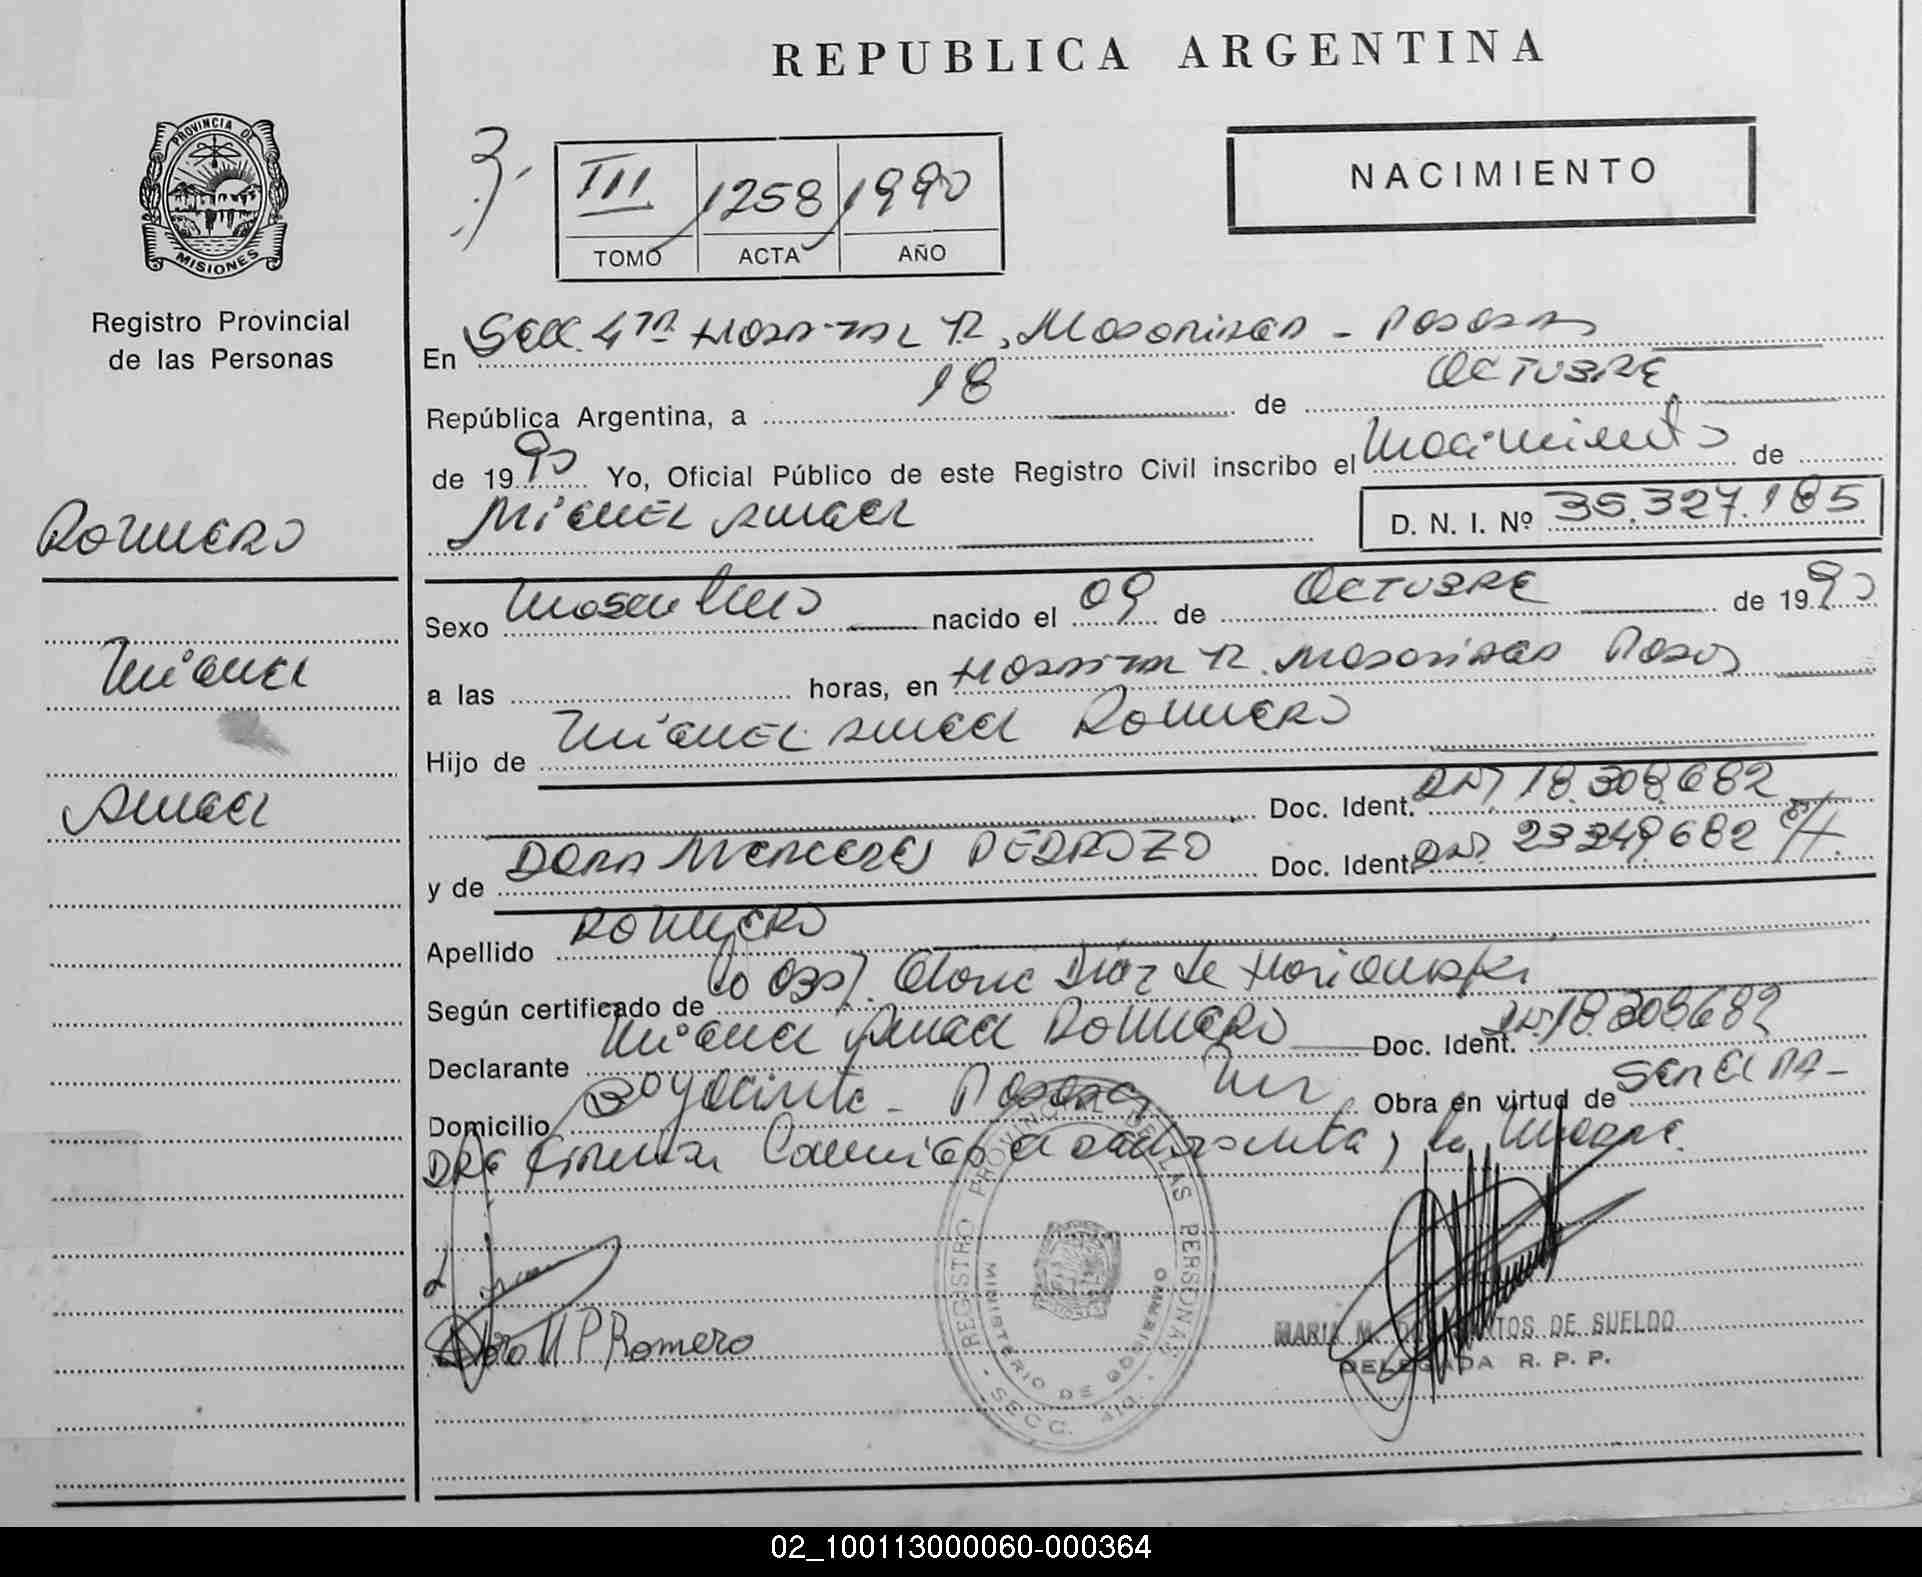 REPUBLICA ARGENTINA
PROVINCIA DE
MISIONES
Registro Provincial
de las Personas
III 1258 1990
TOMO ACTA AÑO
NACIMIENTO
En Secc. 4ta Hospital R. Madariaga - Posadas
República Argentina, a 18 de OCTUBRE
de 1990 Yo, Oficial Público de este Registro Civil inscribo el Nacimiento de
MIGUEL ANGEL
D. N. I. Nº 35.327.185
ROMERO
Miguel
Angel
Sexo Masculino nacido el 09 de OCTUBRE de 1990
a las horas, en Hospital R. Madariaga Posadas
Hijo de MIGUEL ANGEL ROMERO
Doc. Ident. DNI 18.308.682
y de DORA MERCEDES PEDROZO Doc. Ident. DNI 23249682
Apellido ROMERO
Según certificado de Diaz de
Declarante Miguel Angel ROMERO Doc. Ident. DNI 18.308682
Domicilio Posadas Mnes Obra en virtud de Ser el PA-
DRE Firman Conmigo el declarante y la Madre.
Dora M P Romero
REGISTRO PROVINCIAL DE LAS PERSONAS
MINISTERIO DE GOBIERNO
SECC. 4ta.
MARIA M. SANTOS DE SUELDO
DELEGADA R. P. P.
02_100113000060-000364